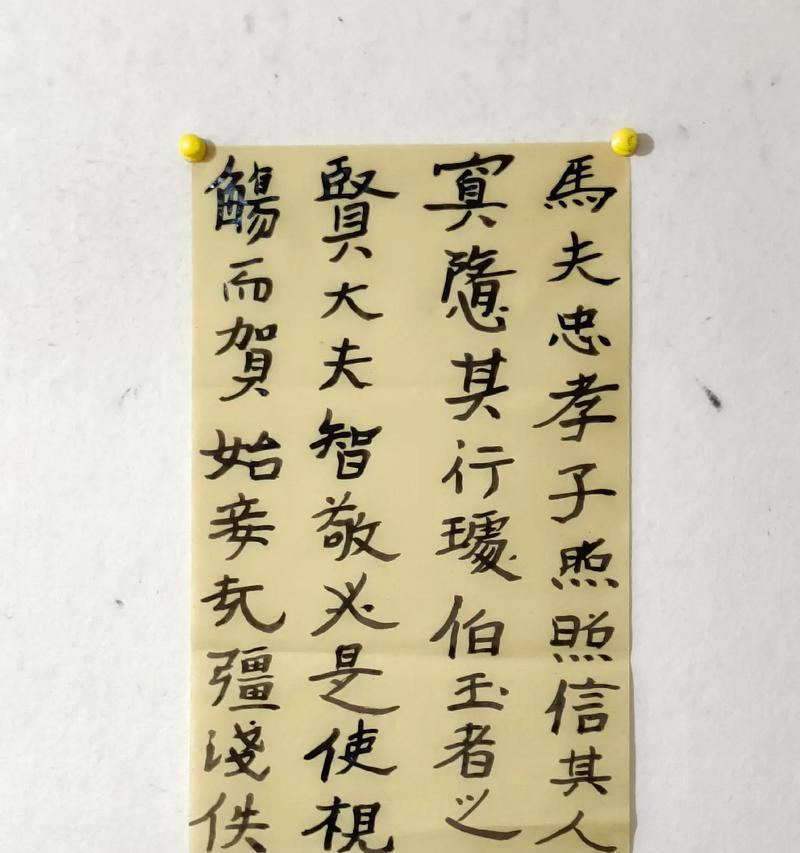 馬夫忠孝子照照信其人
冥其行璩伯玉者之
賢大夫智敬必是使視
觴而賀始妾彊淺佚